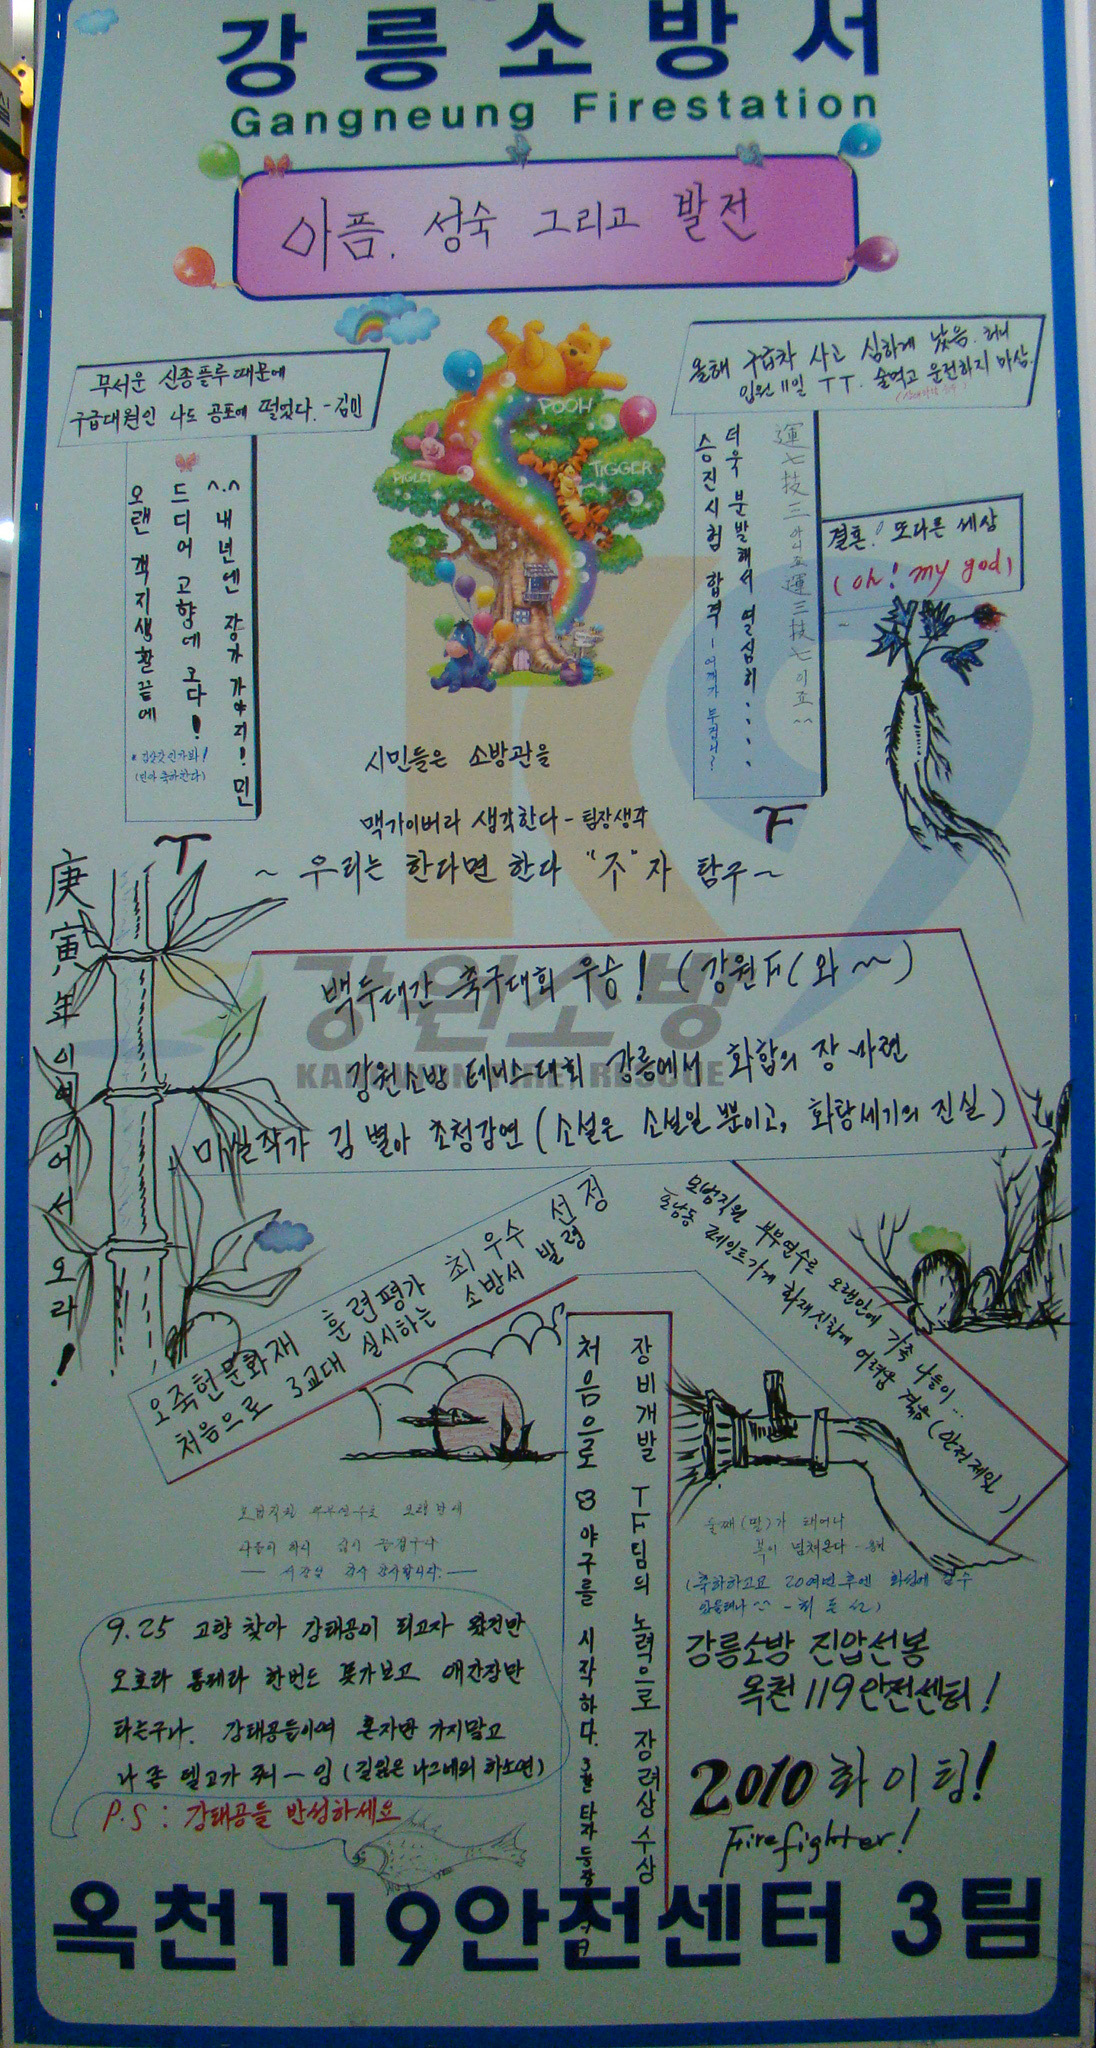 강릉소방서
Gangneung Firestation
아픔. 성숙 그리고 발전
무서운 신종플루 때문에
구급대원인 나도 공포에 떨었다. - 김민
올해 구급차 사고 심하게 났음. 허니
입원 11일 ㅜㅜ. 술먹고 운전하지 마삼.
POOH
PIGLET
TIGGER
^.^ 내년엔 장가 가야지! 민
드디어 고향에 오다!
오랜 객지생활 끝에
(민아 축하한다)
運七技三 아니죠 運三技七 이죠 ^^
더욱 분발해서 열심히....
승진시험 합격 -
결혼! 또다른 세상
(oh! my god)
T
F
시민들은 소방관을
맥가이버라 생각한다 - 팀장생각
~ 우리는 한다면 한다 "주"자 탐구 ~
庚寅年이여 어서 오라!
백두대간 축구대회 우승! (강원FC 와~)
강원소방
강원소방 테니스대회 강릉에서 화합의 장 마련
KANGWON FIRE RESCUE
미실작가 김별아 초청강연 (소설은 소설일 뿐이고, 화랑세기의 진실)
오죽헌문화재 훈련평가 최우수 선정
처음으로 3교대 실시하는 소방서 발령
모범직원 부부연수로 오랜만에 가족 나들이...
포남동 페인트가게 화재진화에 어려움 겪음 (안전제일)
장비개발 TF팀의 노력으로 장려상 수상
처음으로 야구를 시작하다. 3할 타자 등장
모범직원 부부연수로 오랜만에
둘째(딸)가 태어나
복이 넘쳐온다
(축하하고 20여년 후엔
9.25 고향 찾아 강태공이 되고자 왔건만
오호라 통제라 한번도 못가보고 애간장만
타는구나. 강태공들이여 혼자만 가지말고
나 좀 델고가 줘 - 잉 (길잃은 나그네의 하소연)
P.S : 강태공들 반성하세요
강릉소방 진압선봉
옥천 119안전센터!
2010 화이팅!
Firefighter!
옥천119안전센터 3팀